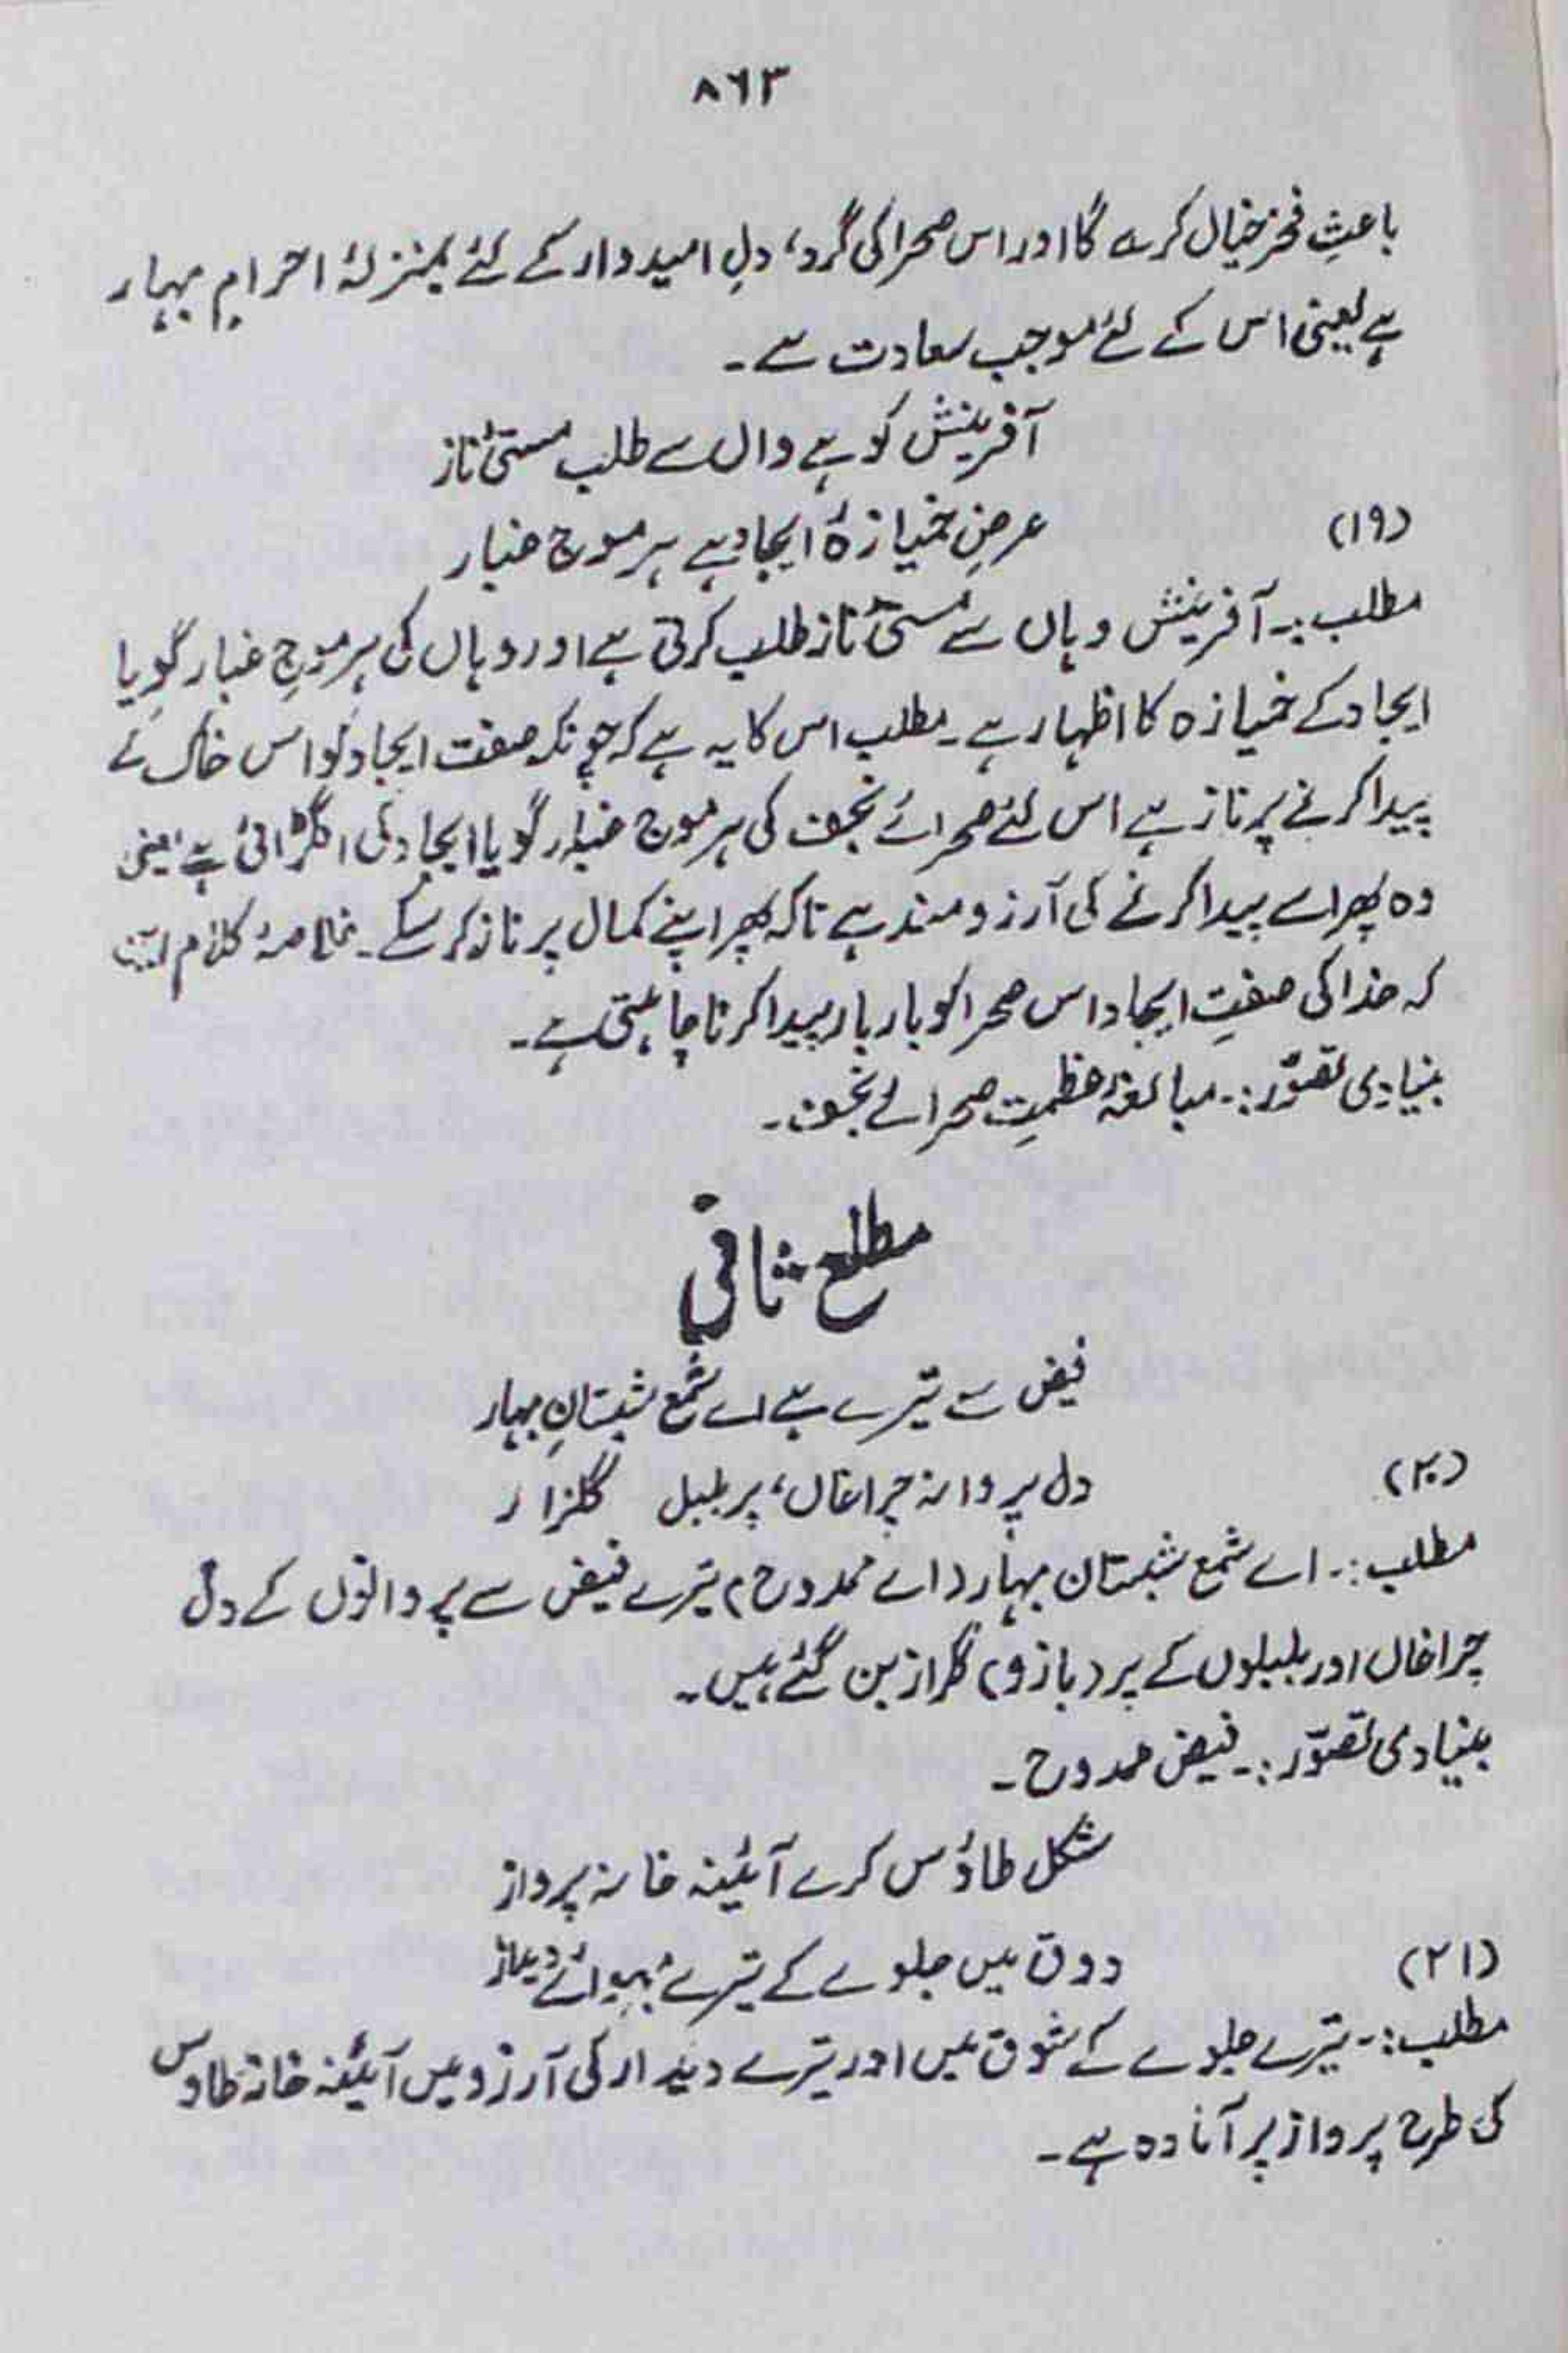 ۸۶۳
باعثِ فخر خیال کرے گا اور اس صحرا کی گرد، دلِ امیدوار کے لئے بمنزلۂ احرامِ بہار
ہے یعنی اس کے لئے موجب سعادت ہے۔
آفرینش کو ہے واں سے طلب مستیٔ ناز
(۱۹) عرضِ خمیازۂ ایجاد ہے ہر موج غبار
مطلب:۔ آفرینش وہاں سے مستیٔ ناز طلب کرتی ہے اور وہاں کی ہر موجِ غبار گویا
ایجاد کے خمیازہ کا اظہار ہے۔ مطلب اس کا یہ ہے کہ چونکہ صفت ایجاد کو اس خاک کے
پیدا کرنے پر ناز ہے اس لئے صحرائے نجف کی ہر موج غبار گویا ایجاد کی انگڑائی ہے یعنی
وہ پھر اسے پیدا کرنے کی آرزومند ہے تاکہ پھر اپنے کمال پر ناز کر سکے۔ خلاصۂ کلام
کہ خدا کی صفتِ ایجاد اس صحرا کو بار بار پیدا کرنا چاہتی ہے۔
بنیادی تصوّر:۔ مبالغۂ عظمتِ صحرائے نجف۔
مطلع ثانی
فیض سے تیرے ہے اے شمع شبستانِ بہار
(۲۰) دل پروانہ چراغاں، پر بلبل گلزار
مطلب:۔ اے شمع شبستان بہار (اے ممدوح) تیرے فیض سے پروانوں کے دل
چراغاں اور بلبلوں کے پر (بازو) گلزار بن گئے ہیں۔
بنیادی تصوّر:۔ فیض ممدوح۔
شکل طاؤس کرے آئینہ خانہ پرواز
(۲۱) ذوق میں جلوے کے تیرے بہوائے دیدار
مطلب:۔ تیرے جلوے کے شوق میں اور تیرے دیدار کی آرزو میں آئینہ خانہ طاؤس
کی طرح پرواز پر آمادہ ہے۔